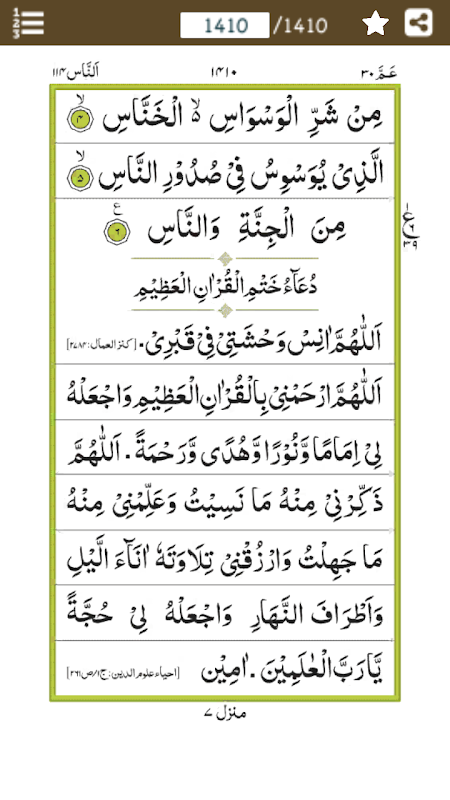 1410 /1410
عَمَّ ٣٠ ١٤١٠ اَلنَّاس ١١٤
مِنْ شَرِّ الْوَسْوَاسِ ۙ الْخَنَّاسِ ۙ﴿۴﴾
الَّذِیْ یُوَسْوِسُ فِیْ صُدُوْرِ النَّاسِ ۙ﴿۵﴾
مِنَ الْجِنَّةِ وَالنَّاسِ ﴿۶﴾ ع
ع ٣٩
دُعَآءُ خَتْمِ الْقُرْاٰنِ الْعَظِیْمِ
اَللّٰهُمَّ اٰنِسْ وَحْشَتِیْ فِیْ قَبْرِیْ. [کنز العمال: ۲۷۸۴]
اَللّٰهُمَّ ارْحَمْنِیْ بِالْقُرْاٰنِ الْعَظِیْمِ وَاجْعَلْهُ
لِیْ اِمَامًا وَّنُوْرًا وَّهُدًی وَّرَحْمَةً. اَللّٰهُمَّ
ذَکِّرْنِیْ مِنْهُ مَا نَسِیْتُ وَعَلِّمْنِیْ مِنْهُ
مَا جَهِلْتُ وَارْزُقْنِیْ تِلَاوَتَهٗ اٰنَآءَ الَّیْلِ
وَاَطْرَافَ النَّهَارِ وَاجْعَلْهُ لِیْ حُجَّةً
یَّارَبَّ الْعٰلَمِیْنَ. اٰمِیْن [احیاء علوم الدین: ج۱/ص۲۶۱]
منزل ۷